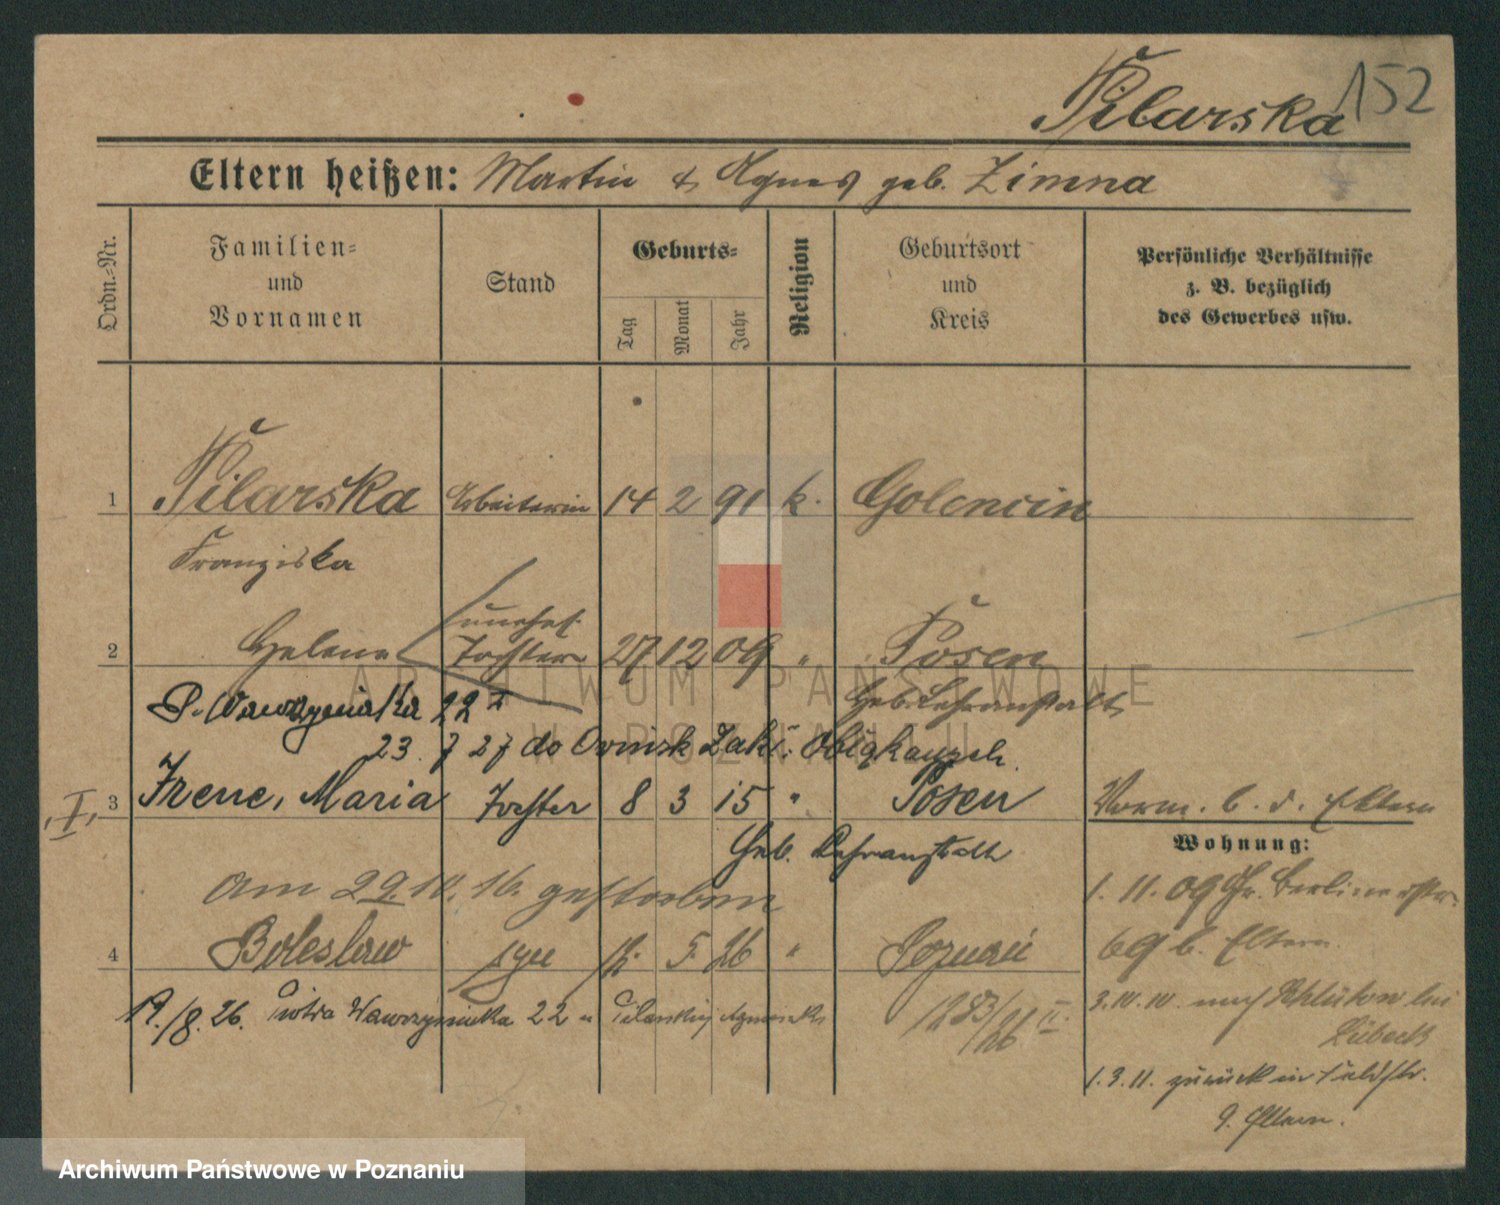 Pilarska 152
Eltern heißen: Martin & Agnes geb. Zimna
Ordn.-Nr.
Familien-
und
Vornamen
Stand
Geburts-
Tag
Monat
Jahr
Religion
Geburtsort
und
Kreis
Persönliche Verhältnisse
z. B. bezüglich
des Gewerbes usw.
1 Pilarska Arbeiterin 14 2 91 k. Golencin
Franziska
unehel.
2 Helene Tochter 27 12 09 " Posen
P. Wawrzyniaka 22 Geb. Lehranstalt
23. 7 27 do Zakł.
I, 3 Irene, Maria Tochter 8 3 15 " Posen Vorm. b. d. Eltern
Geb. Lehranstalt
Wohnung:
am 29.10.16. gestorben
1.11.09 Gr. Berlinerstr.
4 Boleslaw syn 12. 5. 26 " Poznań
69 b. Eltern
19./8. 26. Piotra Wawrzyniaka 22 u Pilarskiej Agnieszki
1283/26 II.
3.10.10. nach Schlutow bei
Lübeck
1.3.11. zurück in Feldstr.
9. Eltern.
ARCHIWUM PAŃSTWOWE
W POZNANIU
Archiwum Państwowe w Poznaniu